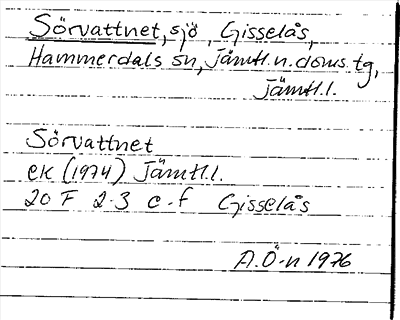 Sörvattnet, sjö, Gisselås,
Hammerdals sn, Jämtl.n.doms.tg,
Jämtl.l.
Sörvattnet
ek (1974) Jämtl.l.
20 F 2-3 e-f Gisselås
A.Ö-n 1976